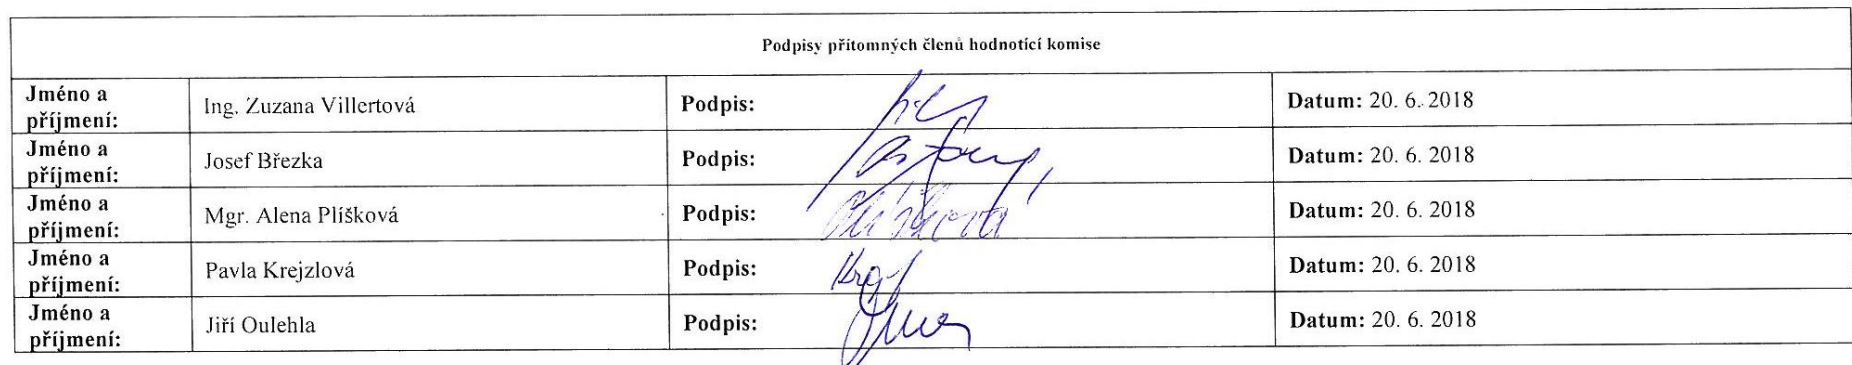 Podpisy přítomných členů hodnotící komise
Jméno a příjmení: Ing. Zuzana Villertová Podpis: Datum: 20. 6. 2018
Jméno a příjmení: Josef Březka Podpis: Datum: 20. 6. 2018
Jméno a příjmení: Mgr. Alena Plíšková Podpis: Datum: 20. 6. 2018
Jméno a příjmení: Pavla Krejzlová Podpis: Datum: 20. 6. 2018
Jméno a příjmení: Jiří Oulehla Podpis: Datum: 20. 6. 2018